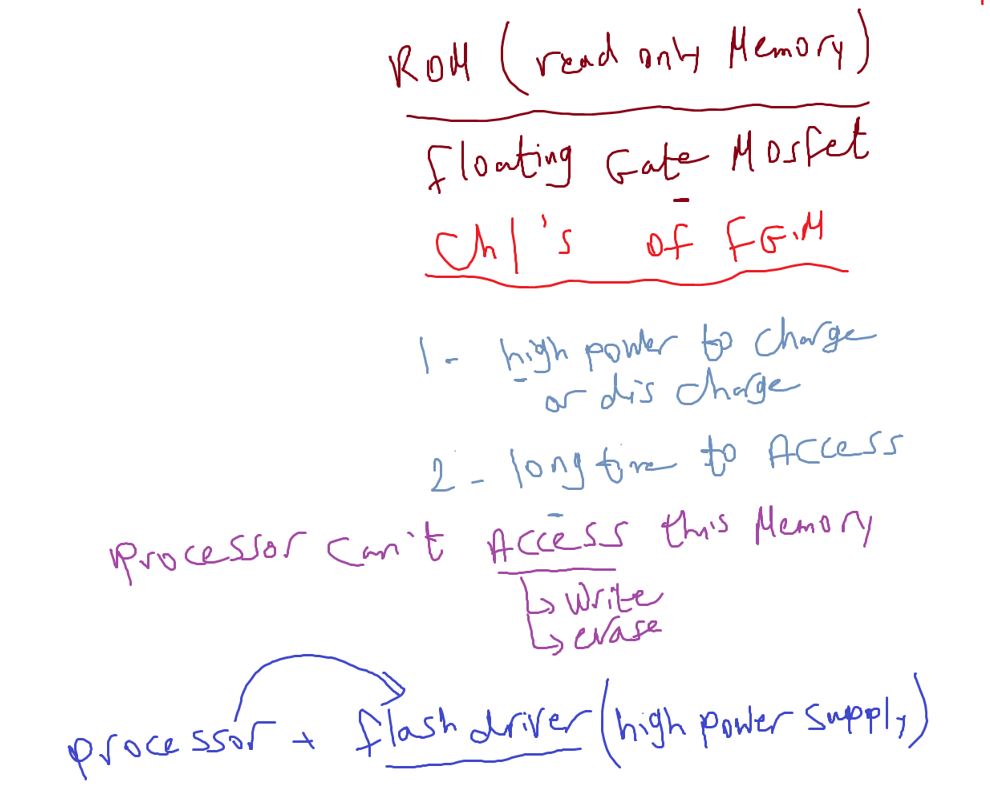 ROM (read only Memory)
floating Gate Mosfet
Ch/'s of F.G.M
1- high power to charge
or dis charge
2- long time to Access
processor can't Access this Memory
↳ write
↳ erase
processor + flash driver (high power supply)